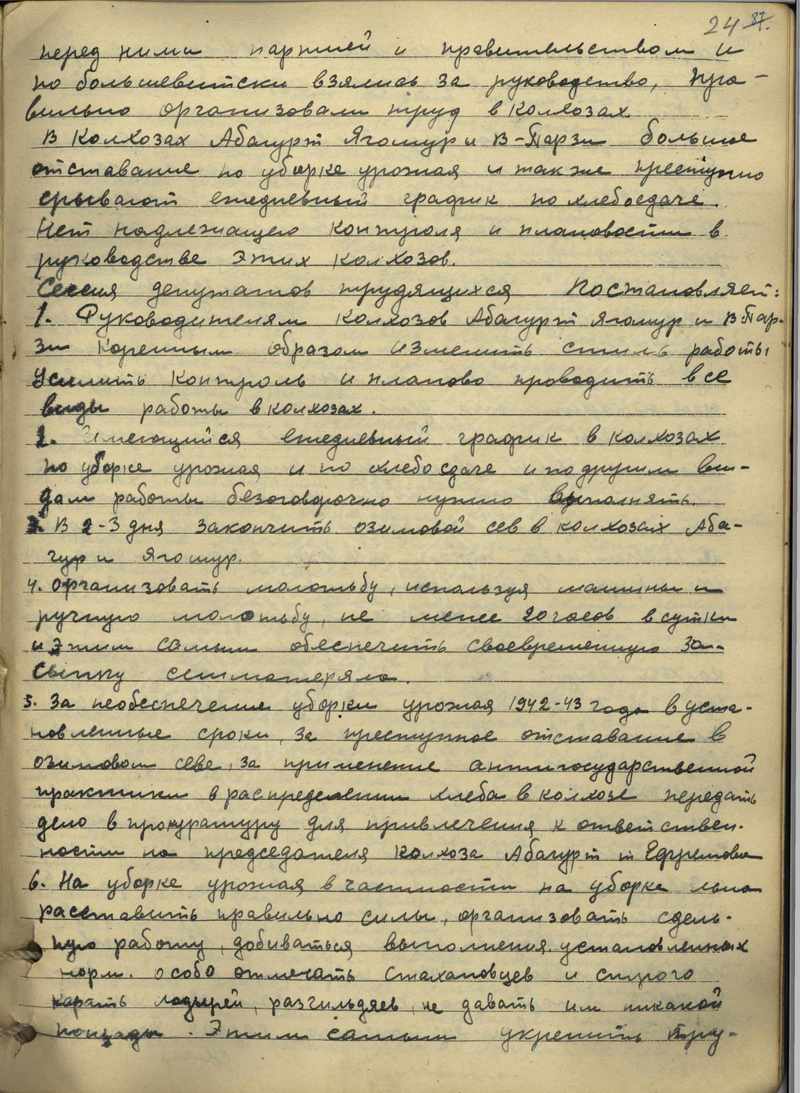 24 37.
перед ними партией и правительством и
по большевитски взялись за руководство, пра-
вильно организовали труд в колхозах.
В колхозах Абагурт Ягошур и В-Парзи большие
отставание по уборке урожая и также преступно
срывают ежедневный график по хлебосдаче.
Нет надлежащего контроля и плановости в
руководстве этих колхозов.
Сессия депутатов трудящихся Постановляет:
1. Руководителям колхозов Абагурт Ягошур и В-Пар-
зи коренным образом изменить стиль работы,
Усилить контроль и планово проводить все
виды работы в колхозах.
2. Имеющийся ежедневный график в колхозах
по уборке урожая и по хлебосдаче и по другим ви-
дам работы безоговорочно нужно выполнять.
3. В 2-3 дня закончить озимовой сев в колхозах Аба-
гур и Ягошур.
4. Организовать молотьбу, используя машины и
ручную молотьбу, не менее 20 часов в сутки
и этим самым обеспечить своевременную за-
сыпку семматеряла.
5. За необеспечение уборки урожая 1942-43 года в уста-
новленные сроки, за преступное отставание в
озимовом севе, за применение антигосударственной
практики в распределении хлеба в колхозе передать
дело в прокуратуру для привлечения к ответствен-
ности на председателя колхоза Абагурт т Ефремова
6. На уборке урожая в частности на уборке льна
расставить правильно силы, организовать сдель-
ную работу, добиваться выполнения установленных
норм. особо отмечать Стахановцев и строго
карать лодырей, разгильдяев, не давать им никакой
пощады. Этим самым укрепить тру-